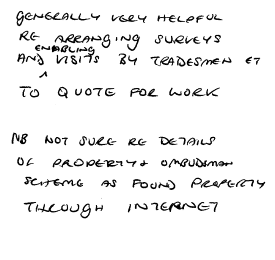 GENERALLY VERY HELPFUL
RE ARRANGING SURVEYS
AND ENABLING VISITS BY TRADESMEN ET
TO QUOTE FOR WORK
NB NOT SURE RE DETAILS
OF PROPERTY & OMBUDSMAN
SCHEME AS FOUND PROPERTY
THROUGH INTERNET